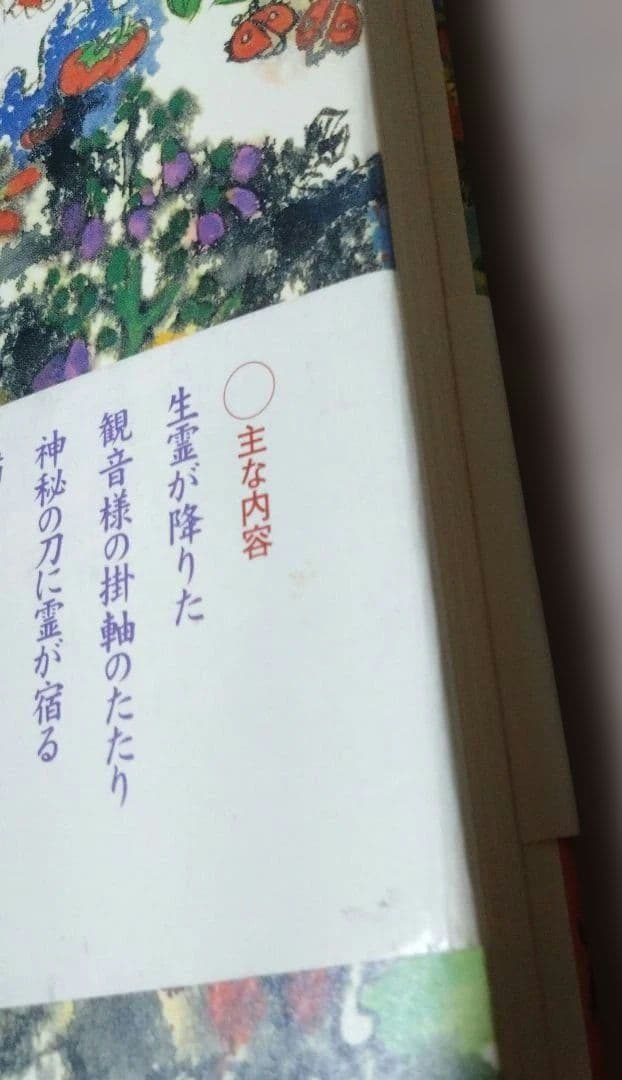 ○主な内容
生霊が降りた
観音様の掛軸のたたり
神秘の刀に霊が宿る